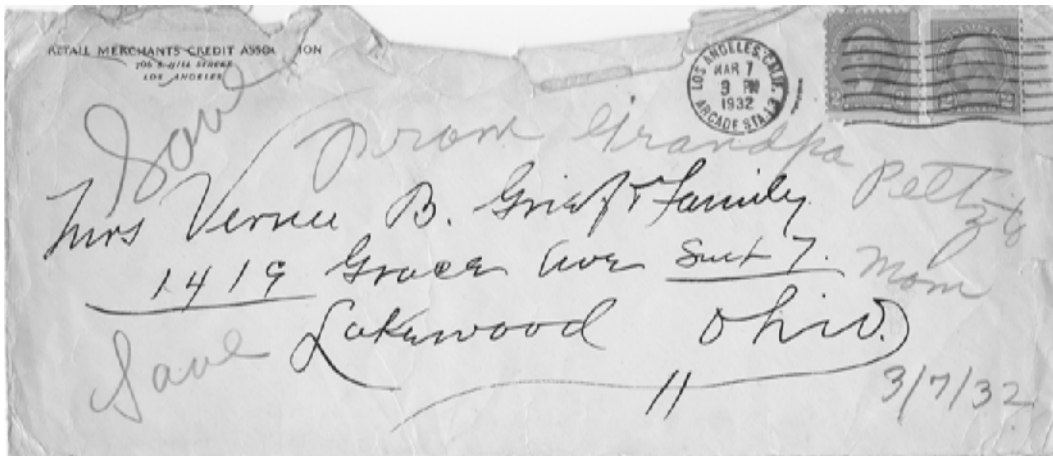 RETAIL MERCHANTS CREDIT ASSOCIATION
706 S. HILL STREET
LOS ANGELES
LOS ANGELES, CALIF.
MAR 7
9 PM
1932
ARCADE STA.
Save
From Grandpa Peltz to Mom
Mrs Vernee B. Grief & Family
1419 Grace Ave Suit 7.
Lakewood Ohio.
Save
11
3/7/32